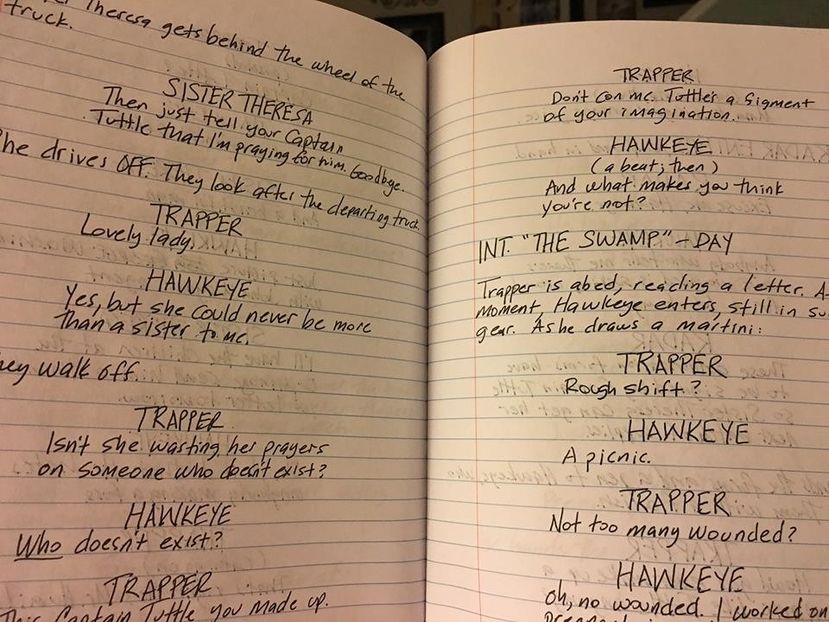 Theresa gets behind the wheel of the
truck.
SISTER THERESA
Then just tell your Captain
Tuttle that I'm praying for him. Goodbye.
he drives OFF. They look after the departing truck.
TRAPPER
Lovely lady.
HAWKEYE
Yes, but she could never be more
than a sister to me.
hey walk off.
TRAPPER
Isn't she wasting her prayers
on someone who doesn't exist?
HAWKEYE
Who doesn't exist?
TRAPPER
This Captain Tuttle you made up.
TRAPPER
Don't con me. Tuttle's a figment
of your imagination.
HAWKEYE
(a beat; then)
And what makes you think
you're not?
INT. "THE SWAMP" - DAY
Trapper is abed, reading a letter. A
moment, Hawkeye enters, still in su
gear. As he draws a martini:
TRAPPER
Rough shift?
HAWKEYE
A picnic.
TRAPPER
Not too many wounded?
HAWKEYE
Oh, no wounded. I worked on